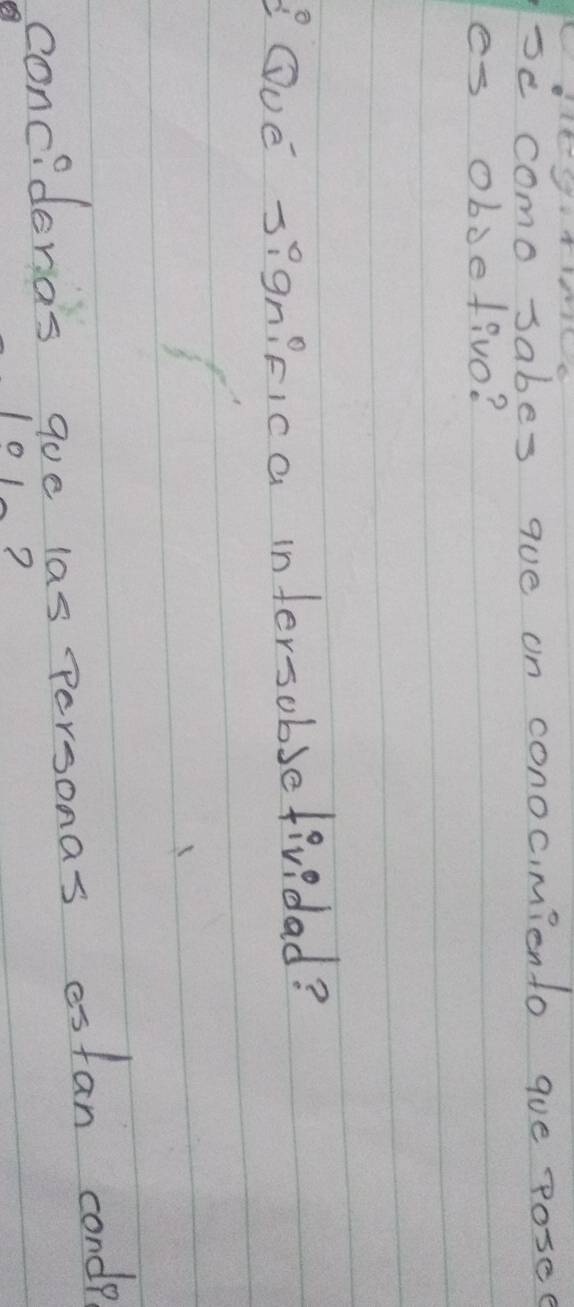 sé como sabes que un conocimiento que Posee
es obsetivo?
¿Qué significa intersubsetividad?
concideras que las Personas estan condi